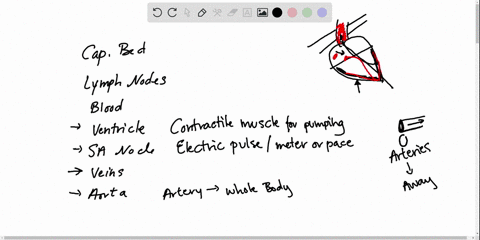 Cap. Bed
Lymph Nodes
Blood
→ Ventricle Contractile muscle for pumping
→ SA Node Electric pulse / meter or pace
→ Veins
→ Aorta Artery → Whole Body
Arteries
↓
Away